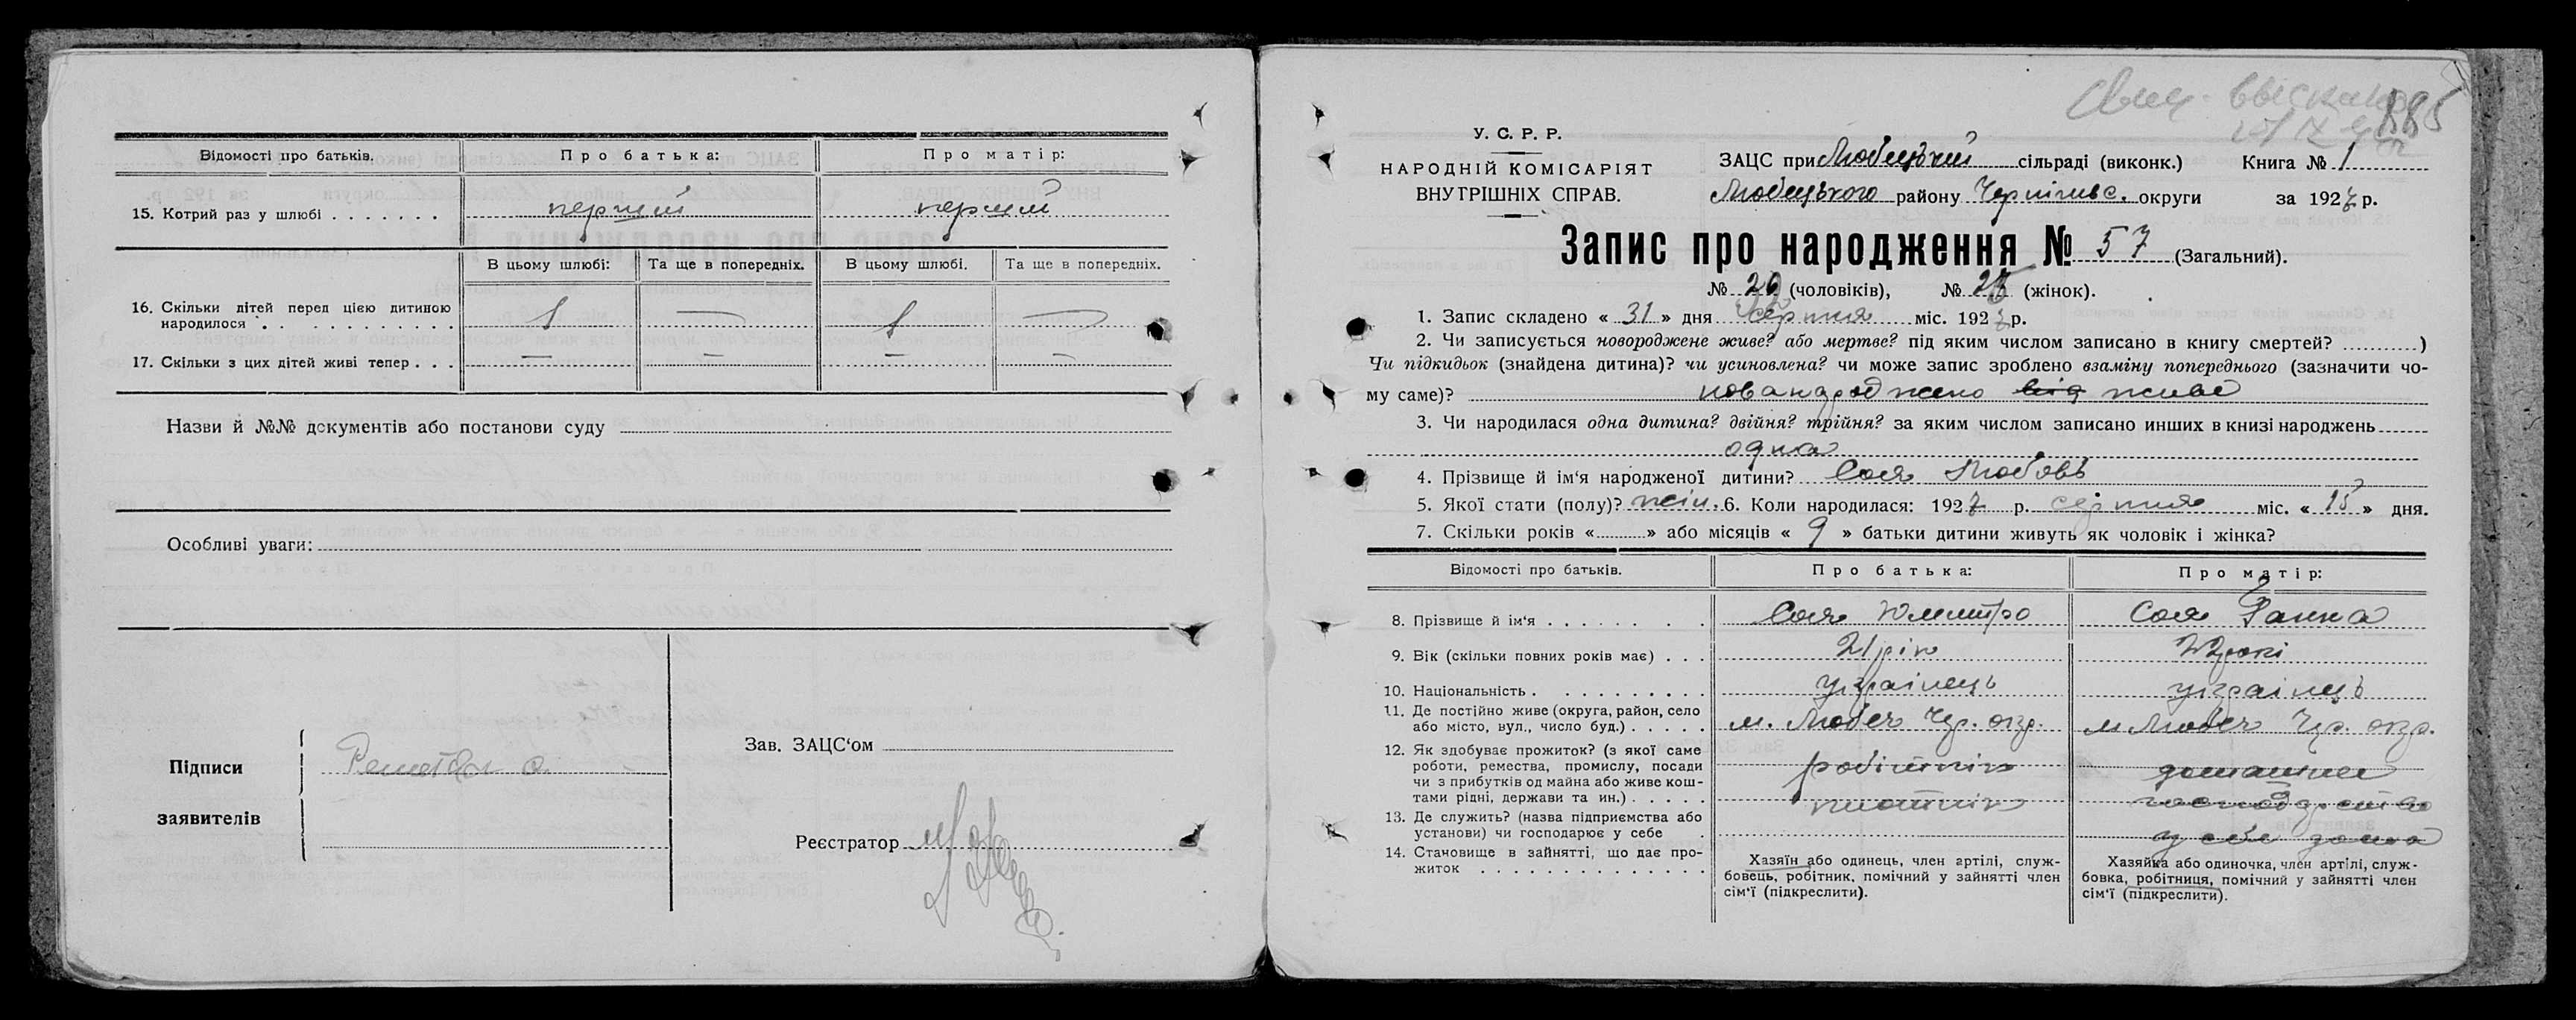 Відомості про батьків.
Про батька:
Про матір:
15. Котрий раз у шлюбі
перший
перший
В цьому шлюбі:
Та ще в попередніх.
В цьому шлюбі.
Та ще в попередніх.
16. Скільки дітей перед цією дитиною
народилося
1
—
1
—
17. Скільки з цих дітей живі тепер
—
—
—
—
Назви й №№ документів або постанови суду
Особливі уваги:
Підписи
заявителів
Зав. ЗАЦС‘ом
Реєстратор
885
У. С. Р. Р.
НАРОДНІЙ КОМІСАРІЯТ
ВНУТРІШНІХ СПРАВ.
ЗАЦС при Любецький сільраді (виконк.) Книга № 1
Любецького району Чернігівс. округи за 1927 р.
Запис про народження № 57 (Загальний).
№ 26 (чоловіків), № (жінок).
1. Запис складено « 31 » дня серпня міс. 1927 р.
2. Чи записується новороджене живе? або мертве? під яким числом записано в книгу смертей? )
Чи підкидьок (знайдена дитина)? чи усиновлена? чи може запис зроблено взаміну попереднього (зазначити чо-
му саме)? живе
3. Чи народилася одна дитина? двійня? трійня? за яким числом записано инших в книзі народжень
одна
4. Прізвище й ім‘я народженої дитини? Соля Любовь
5. Якої стати (полу)? жін. 6. Коли народилася: 1927 р. серпня міс. « 15 » дня.
7. Скільки років « » або місяців « 9 » батьки дитини живуть як чоловік і жінка?
Відомості про батьків.
Про батька:
Про матір:
8. Прізвище й ім‘я
Соля Дмитро
Соля Ганна
9. Вік (скільки повних років має)
21 рік
22 роки
10. Національність
українець
українець
11. Де постійно живе (округа, район, село
або місто, вул., число буд.)
м. Любеч Чр. окр.
м Любеч Чр. окр.
12. Як здобуває прожиток? (з якої саме
роботи, ремества, промислу, посади
чи з прибутків од майна або живе кош-
тами рідні, держави та ин.)
робітник
плотнік
домашнее
господарство
13. Де служить? (назва підприємства або
установи) чи господарює у себе
у себе дома
14. Становище в зайнятті, що дає про-
житок
Хазяїн або одинець, член артілі, служ-
бовець, робітник, помічний у зайнятті член
сім‘ї (підкреслити).
Хазяйка або одиночка, член артілі, служ-
бовка, робітниця, помічний у зайнятті член
сім‘ї (підкреслити).